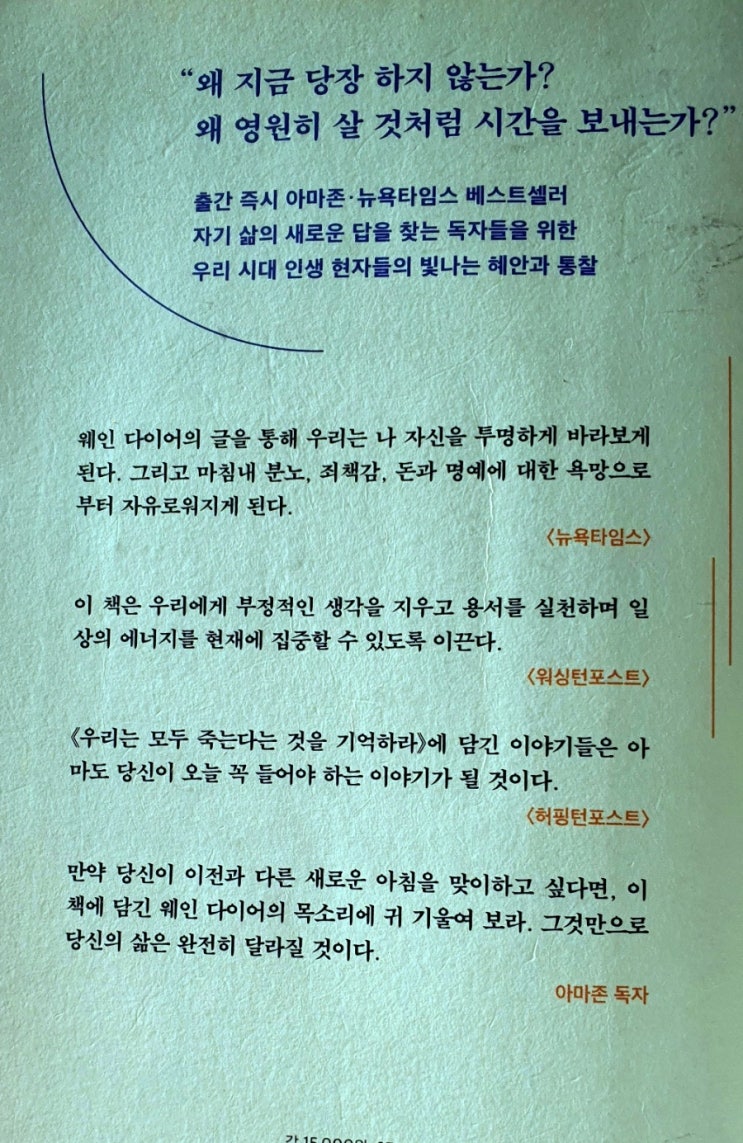 “왜 지금 당장 하지 않는가?
왜 영원히 살 것처럼 시간을 보내는가?”
출간 즉시 아마존·뉴욕타임스 베스트셀러
자기 삶의 새로운 답을 찾는 독자들을 위한
우리 시대 인생 현자들의 빛나는 혜안과 통찰
웨인 다이어의 글을 통해 우리는 나 자신을 투명하게 바라보게
된다. 그리고 마침내 분노, 죄책감, 돈과 명예에 대한 욕망으로
부터 자유로워지게 된다.
〈뉴욕타임스〉
이 책은 우리에게 부정적인 생각을 지우고 용서를 실천하며 일
상의 에너지를 현재에 집중할 수 있도록 이끈다.
〈워싱턴포스트〉
《우리는 모두 죽는다는 것을 기억하라》에 담긴 이야기들은 아
마도 당신이 오늘 꼭 들어야 하는 이야기가 될 것이다.
〈허핑턴포스트〉
만약 당신이 이전과 다른 새로운 아침을 맞이하고 싶다면, 이
책에 담긴 웨인 다이어의 목소리에 귀 기울여 보라. 그것만으로
당신의 삶은 완전히 달라질 것이다.
아마존 독자